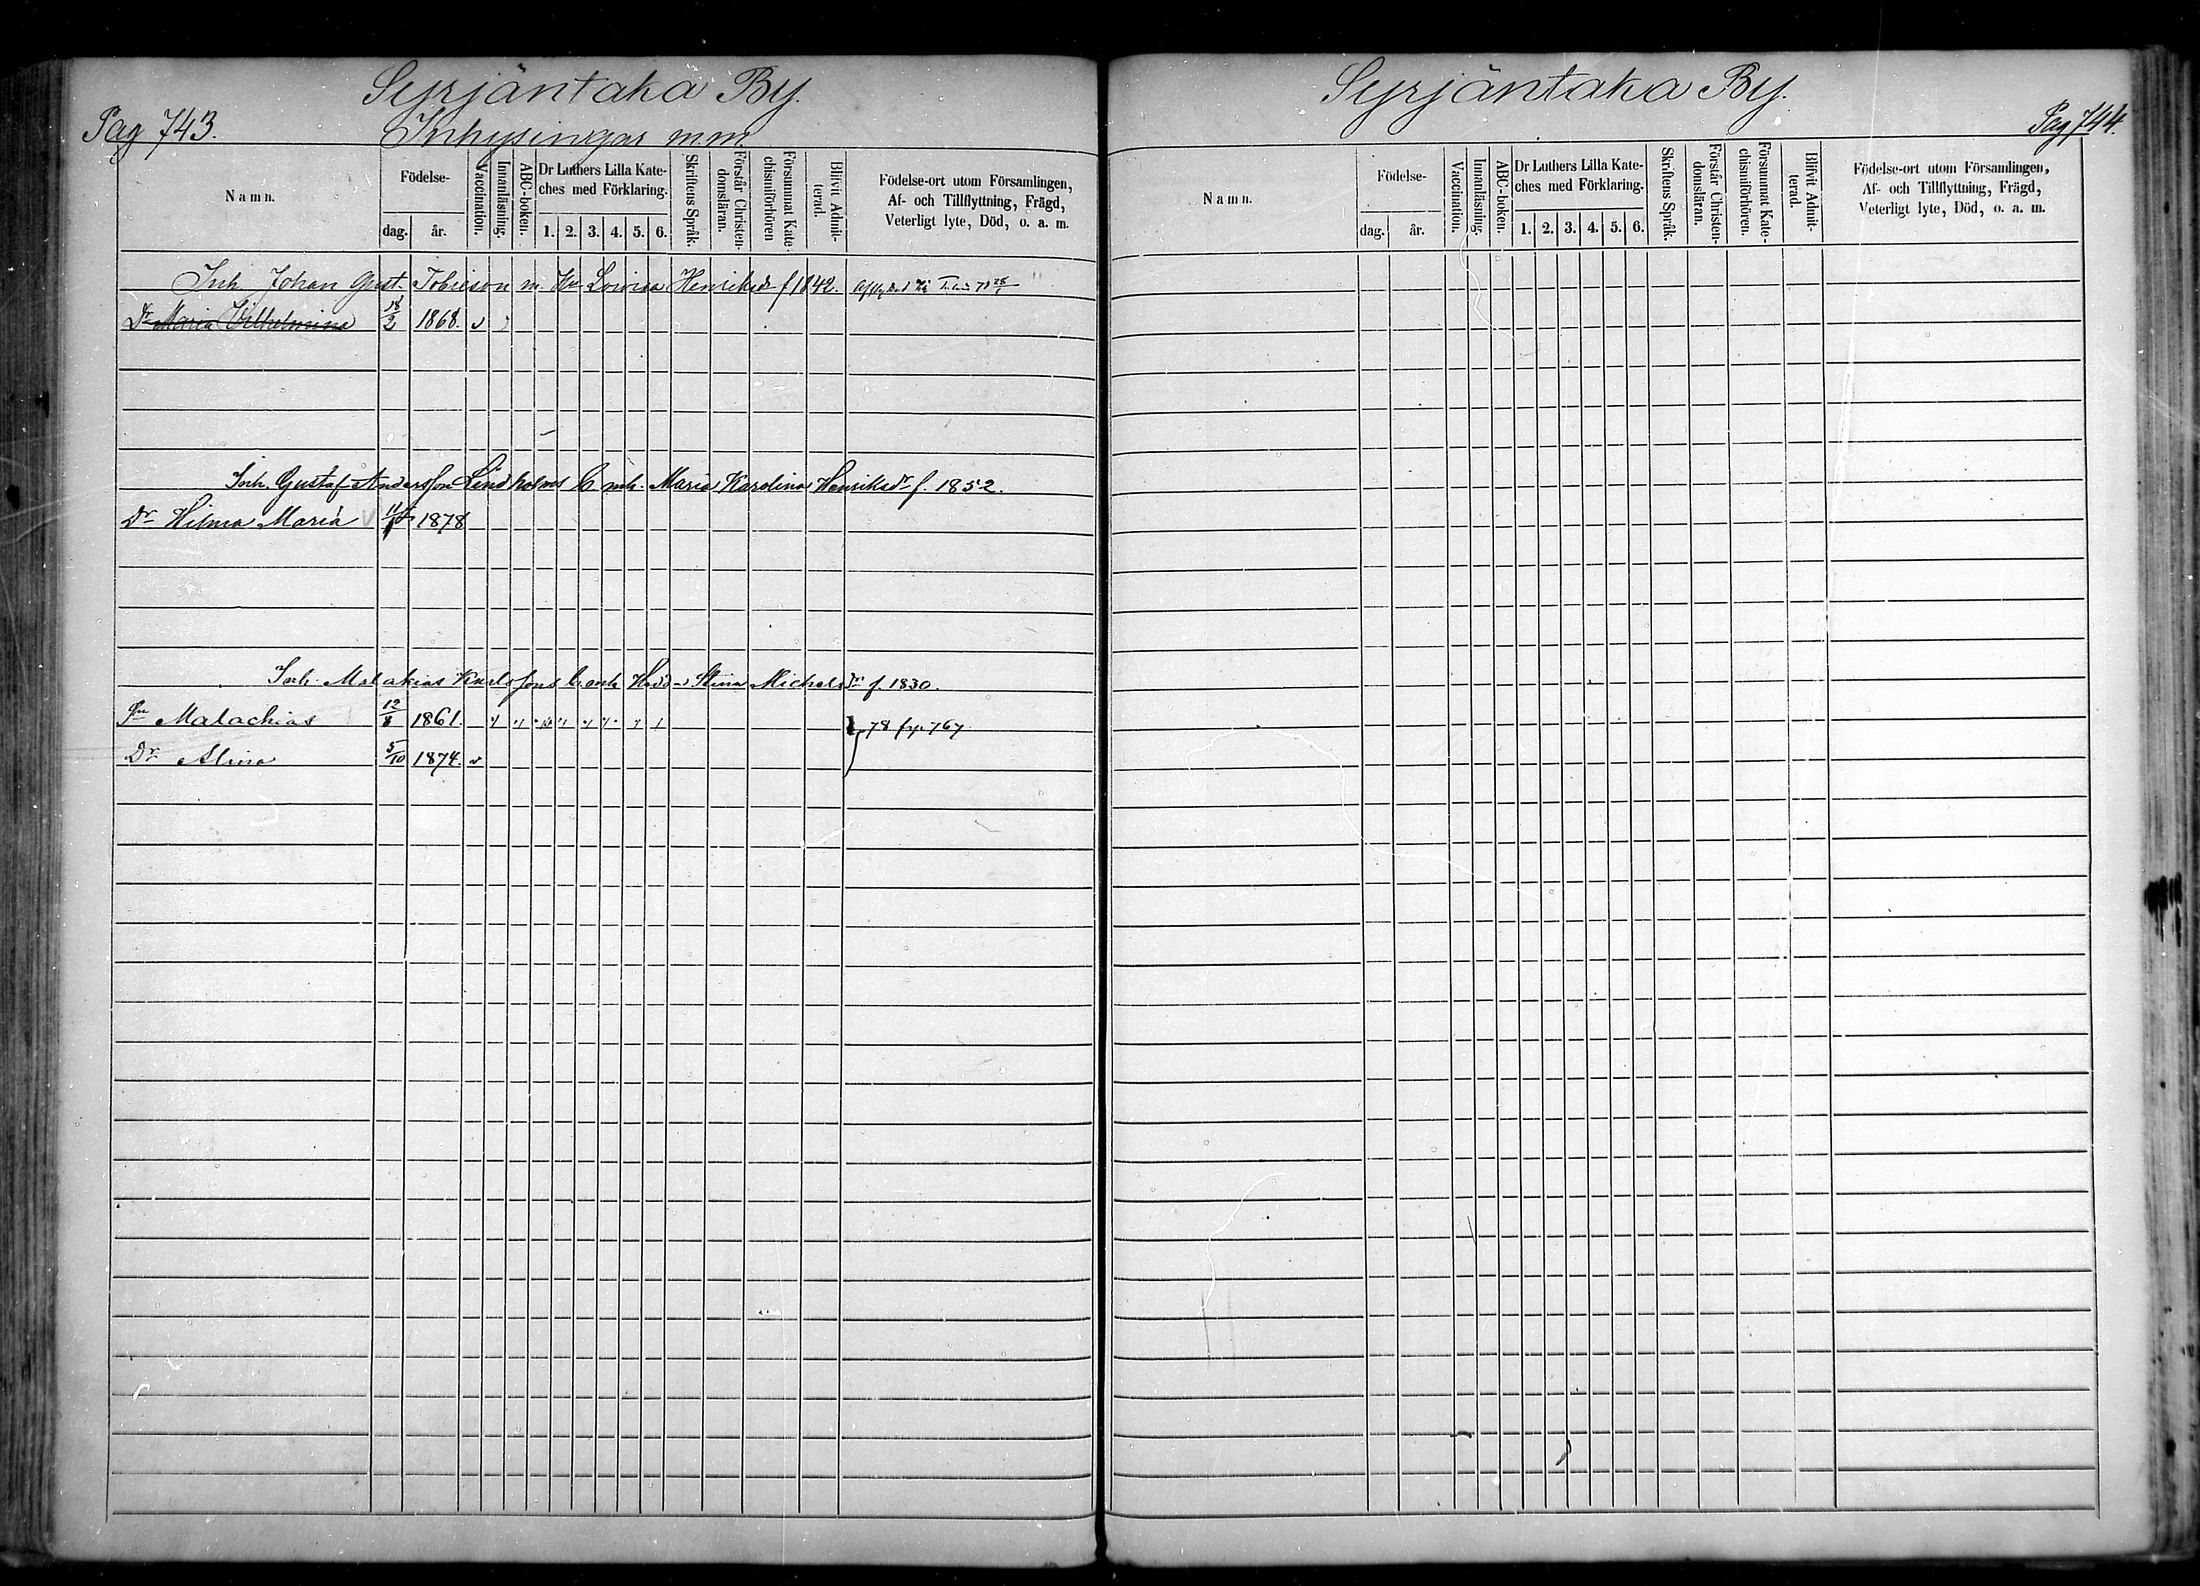 Syrjäntaka By.
Pag 743.
Inhysingar m.m.
Namn.
Födelse-
dag.
år.
Vaccination.
Innanläsning.
ABC-boken.
Dr Luthers Lilla Kate-
ches med Förklaring.
1. 2. 3. 4. 5. 6.
Skriftens Språk.
Förstår Christen-
domsläran.
Försummat Kate-
chismiförhören
Blivit Admit-
terad.
Födelse-ort utom Församlingen,
Af- och Tillflyttning, Frägd,
Veterligt lyte, Död, o. a. m.
Inh. Johan Gust. Tobieson m. Hu Lovisa Henriksdr f 1842.
Dr Maria Vilhelmina 18/2 1868. v
Inh. Gustaf Andersson Lindholms C m h. Maria Karolina Henriksdr f. 1852.
Dr Hilma Maria 1878
Inh. Malakias Karlssons enk Hedda Stina Michelsdr f. 1830.
Sn Malachias 12/8 1861.
78 pag. 767
Dr Alina 5/10 1874. v
Syrjäntaka By.
Pag 744.
Namn.
Födelse-
dag.
år.
Vaccination.
Innanläsning.
ABC-boken.
Dr Luthers Lilla Kate-
ches med Förklaring.
1. 2. 3. 4. 5. 6.
Skriftens Språk.
Förstår Christen-
domsläran.
Försummat Kate-
chismiförhören.
Blifvit Admit-
terad.
Födelse-ort utom Församlingen,
Af- och Tillflyttning, Frägd,
Veterligt lyte, Död, o. a. m.